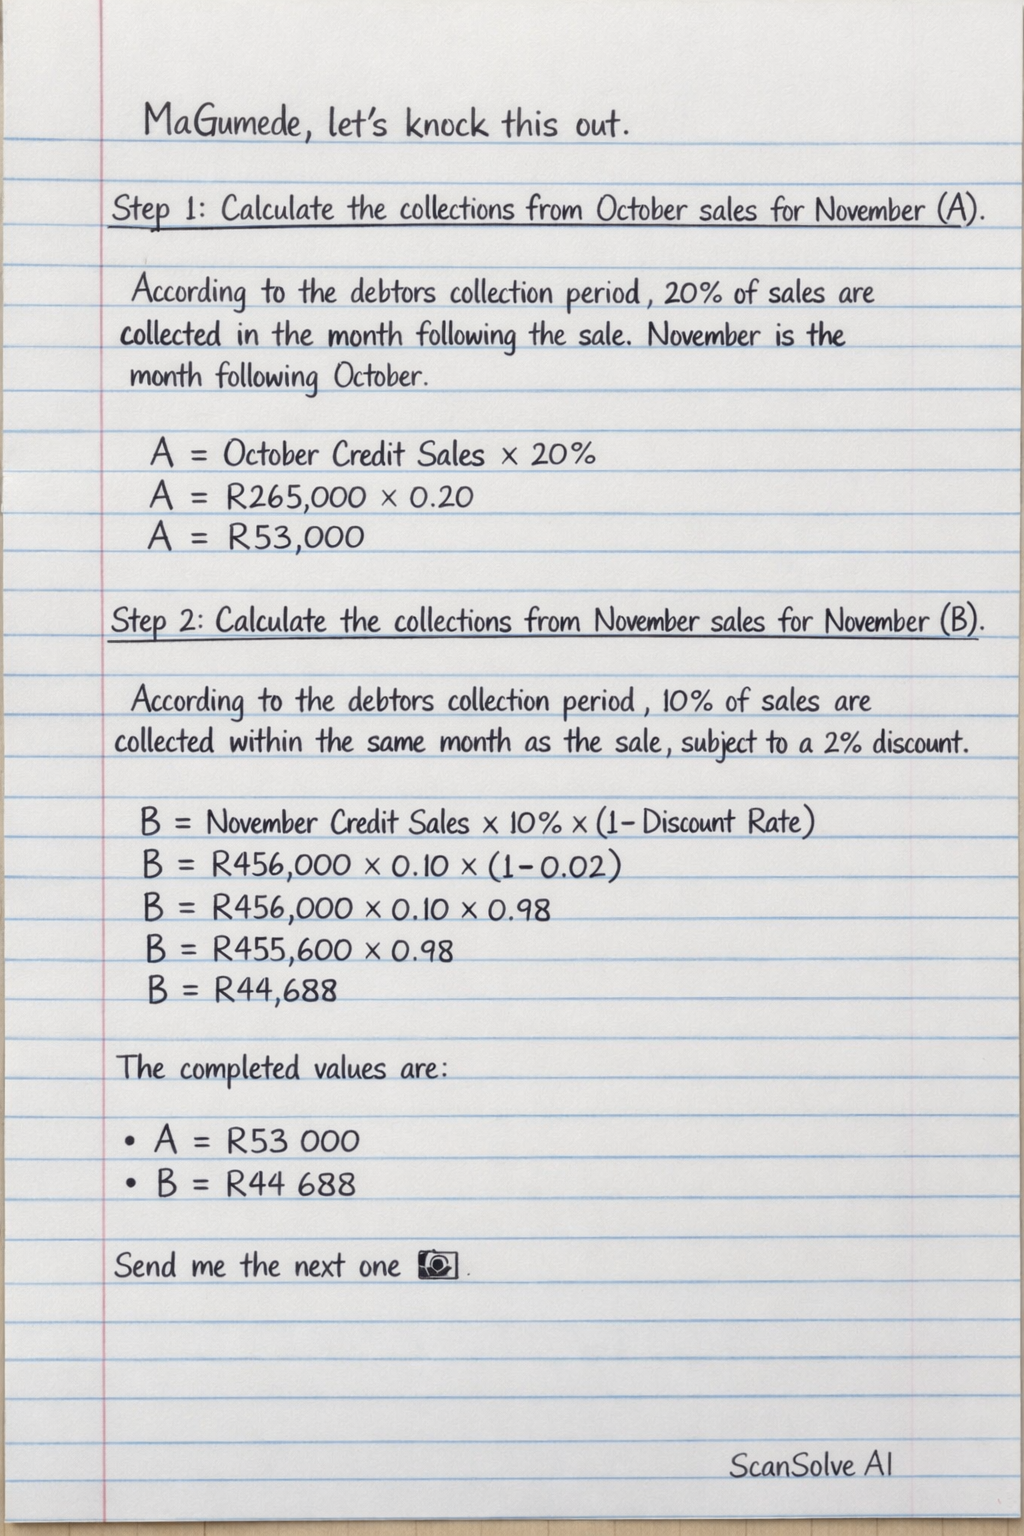 MaGumede, let's knock this out.
Step 1: Calculate the collections from October sales for November (A).
According to the debtors collection period, 20% of sales are
collected in the month following the sale. November is the
month following October.
A = October Credit Sales × 20%
A = R265,000 × 0.20
A = R53,000
Step 2: Calculate the collections from November sales for November (B).
According to the debtors collection period, 10% of sales are
collected within the same month as the sale, subject to a 2% discount.
B = November Credit Sales × 10% × (1-Discount Rate)
B = R456,000 × 0.10 × (1-0.02)
B = R456,000 × 0.10 × 0.98
B = R455,600 × 0.98
B = R44,688
The completed values are:
• A = R53 000
• B = R44 688
Send me the next one 📷.
ScanSolve AI